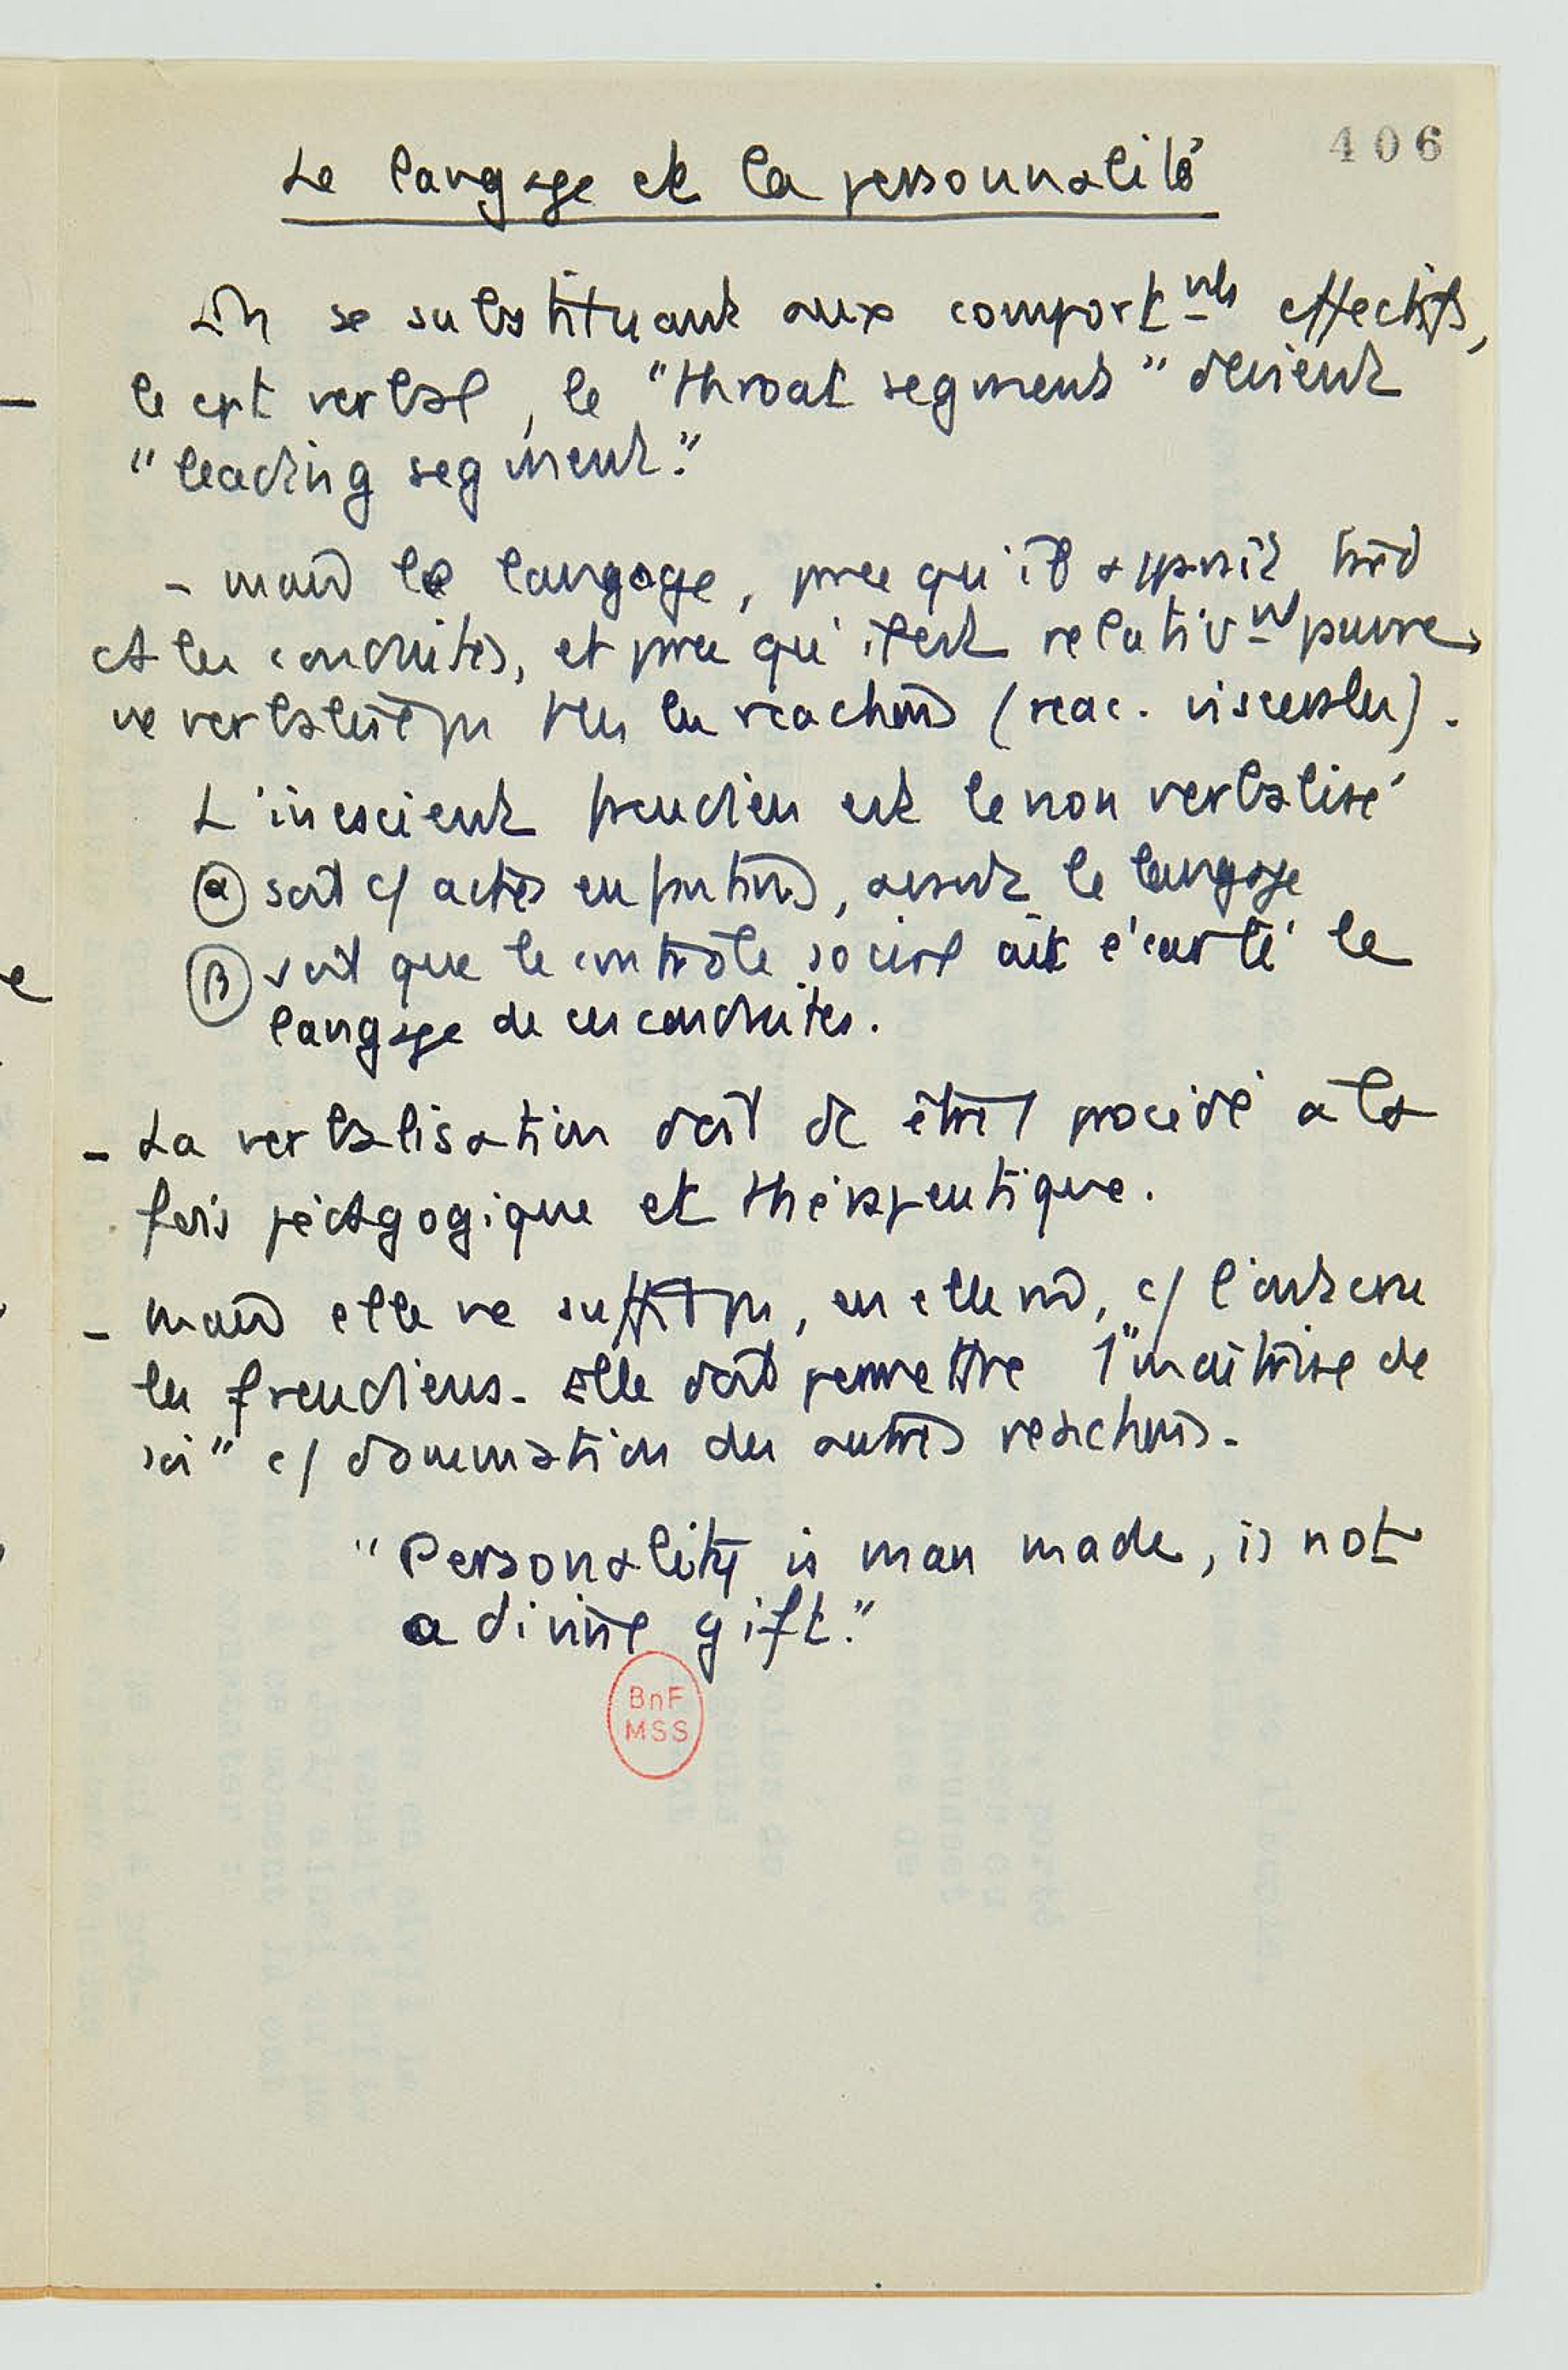 406
Le langage et la personnalité
En se substituant aux comportmts effectifs,
le cpt verbal, le "throat segment" devient
"leading segment."
- mais le langage, pce qu'il apparaît tard
ds les conduites, et pce qu'il est relativmt pauvre,
ne verbalise pas ttes les réactions (réac. viscérales).
L'inconscient freudien est le non verbalisé
(α) soit c/ actes enfantins, avant le langage
(β) soit que le contrôle social ait écarté le
langage de ces conduites.
- La verbalisation doit dc être 1 procédé à la
fois pédagogique et thérapeutique.
- mais elle ne suffit pas, en elle mê, c/ l'ont cru
les freudiens. Elle doit permettre 1 "maîtrise de
soi" c/ domination des autres réactions.
"Personality is man made, is not
a divine gift."
BnF
MSS